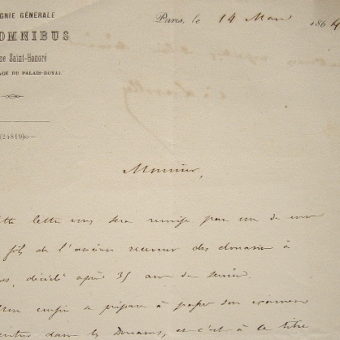 GNIE GÉNÉRALE
OMNIBUS
Saint-Honoré
AGE DU PALAIS-ROYAL
Paris, le 14 Mars 1864
(24819)
Monsieur,
tte lettre vous sera remise par un de mes
fils de l'ancien receveur des douanes à
décédé après 35 ans de service
enfin a préparé à passer son examen
dans les Douanes, et c'est à ce titre